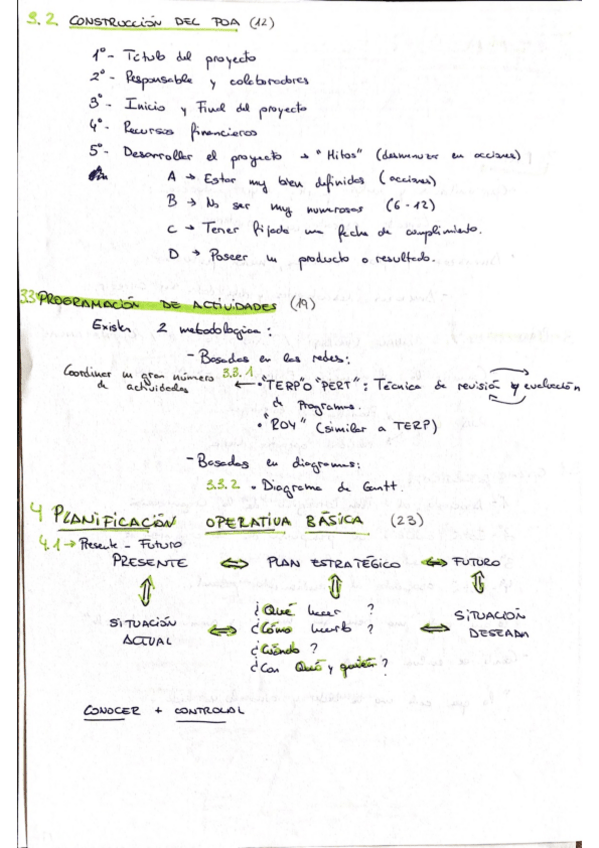 3.2. CONSTRUCCIÓN DEL POA (12)
1º- Título del proyecto
2º- Responsable y colaboradores
3º- Inicio y Final del proyecto
4º- Recursos financieros
5º- Desarrollar el proyecto → "Hitos" (desmenuzar en acciones)
A → Estar muy bien definidos (acciones)
B → No ser muy numerosas (6-12)
C → Tener fijada una fecha de cumplimiento.
D → Poseer un producto o resultado.
3.3 PROGRAMACIÓN DE ACTIVIDADES (19)
Existen 2 metodologías:
- Basadas en las redes:
Coordinar un gran número de actividades ← 3.3.1 • "TERP" O "PERT": Técnica de revisión y evaluación
de Programas.
• "ROY" (similar a TERP)
- Basadas en diagramas:
3.3.2 • Diagrama de Gantt.
4 PLANIFICACIÓN OPERATIVA BASICA (23)
4.1 → Presente - Futuro
PRESENTE ⇔ PLAN ESTRATÉGICO ⇔ FUTURO
⇕ ⇕ ⇕
SITUACIÓN ACTUAL ⇔ ¿Qué hacer? ⇔ SITUACIÓN DESEADA
¿Cómo hacerlo?
¿Cuándo?
¿Con Qué y quién?
CONOCER + CONTROLAR